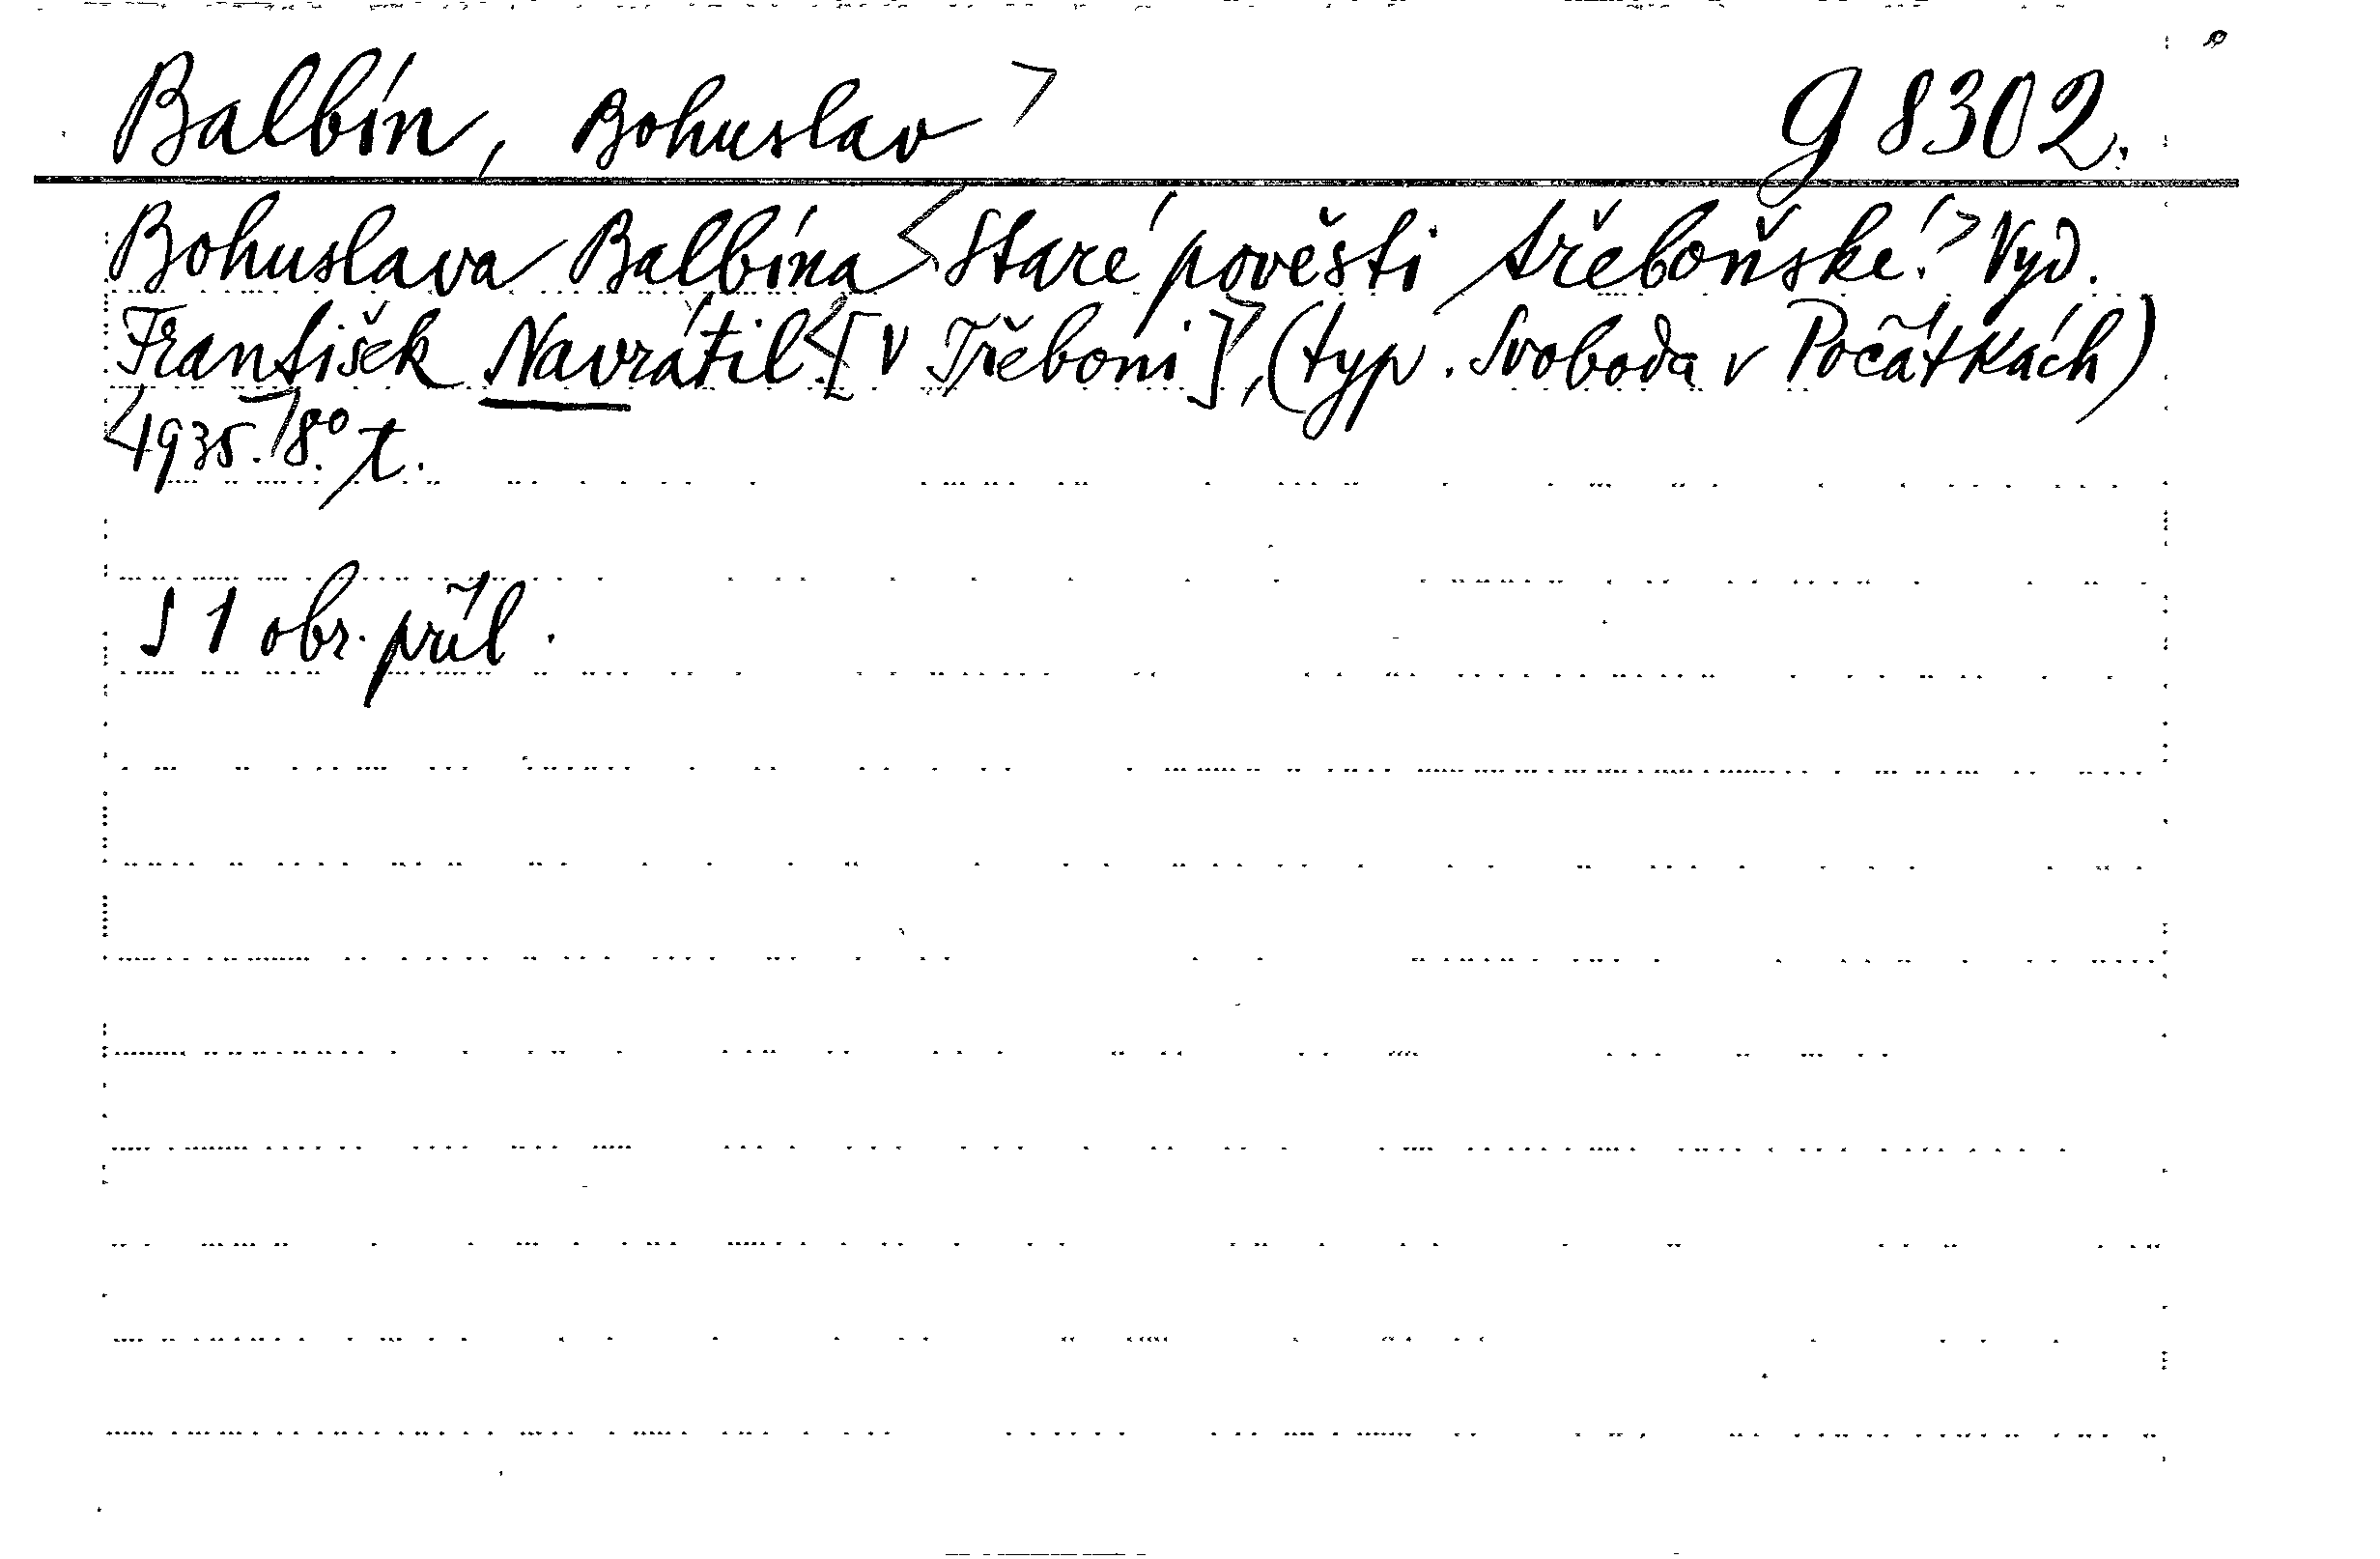 Balbín, Bohuslav> G 8302.
Bohuslava Balbína <Staré pověsti třeboňské.> Vyd.
František Navrátil.<[V Třeboni]>, (typ. Svoboda v Počátkách)
<1935.> 8°. t.
S 1 obr. příl.